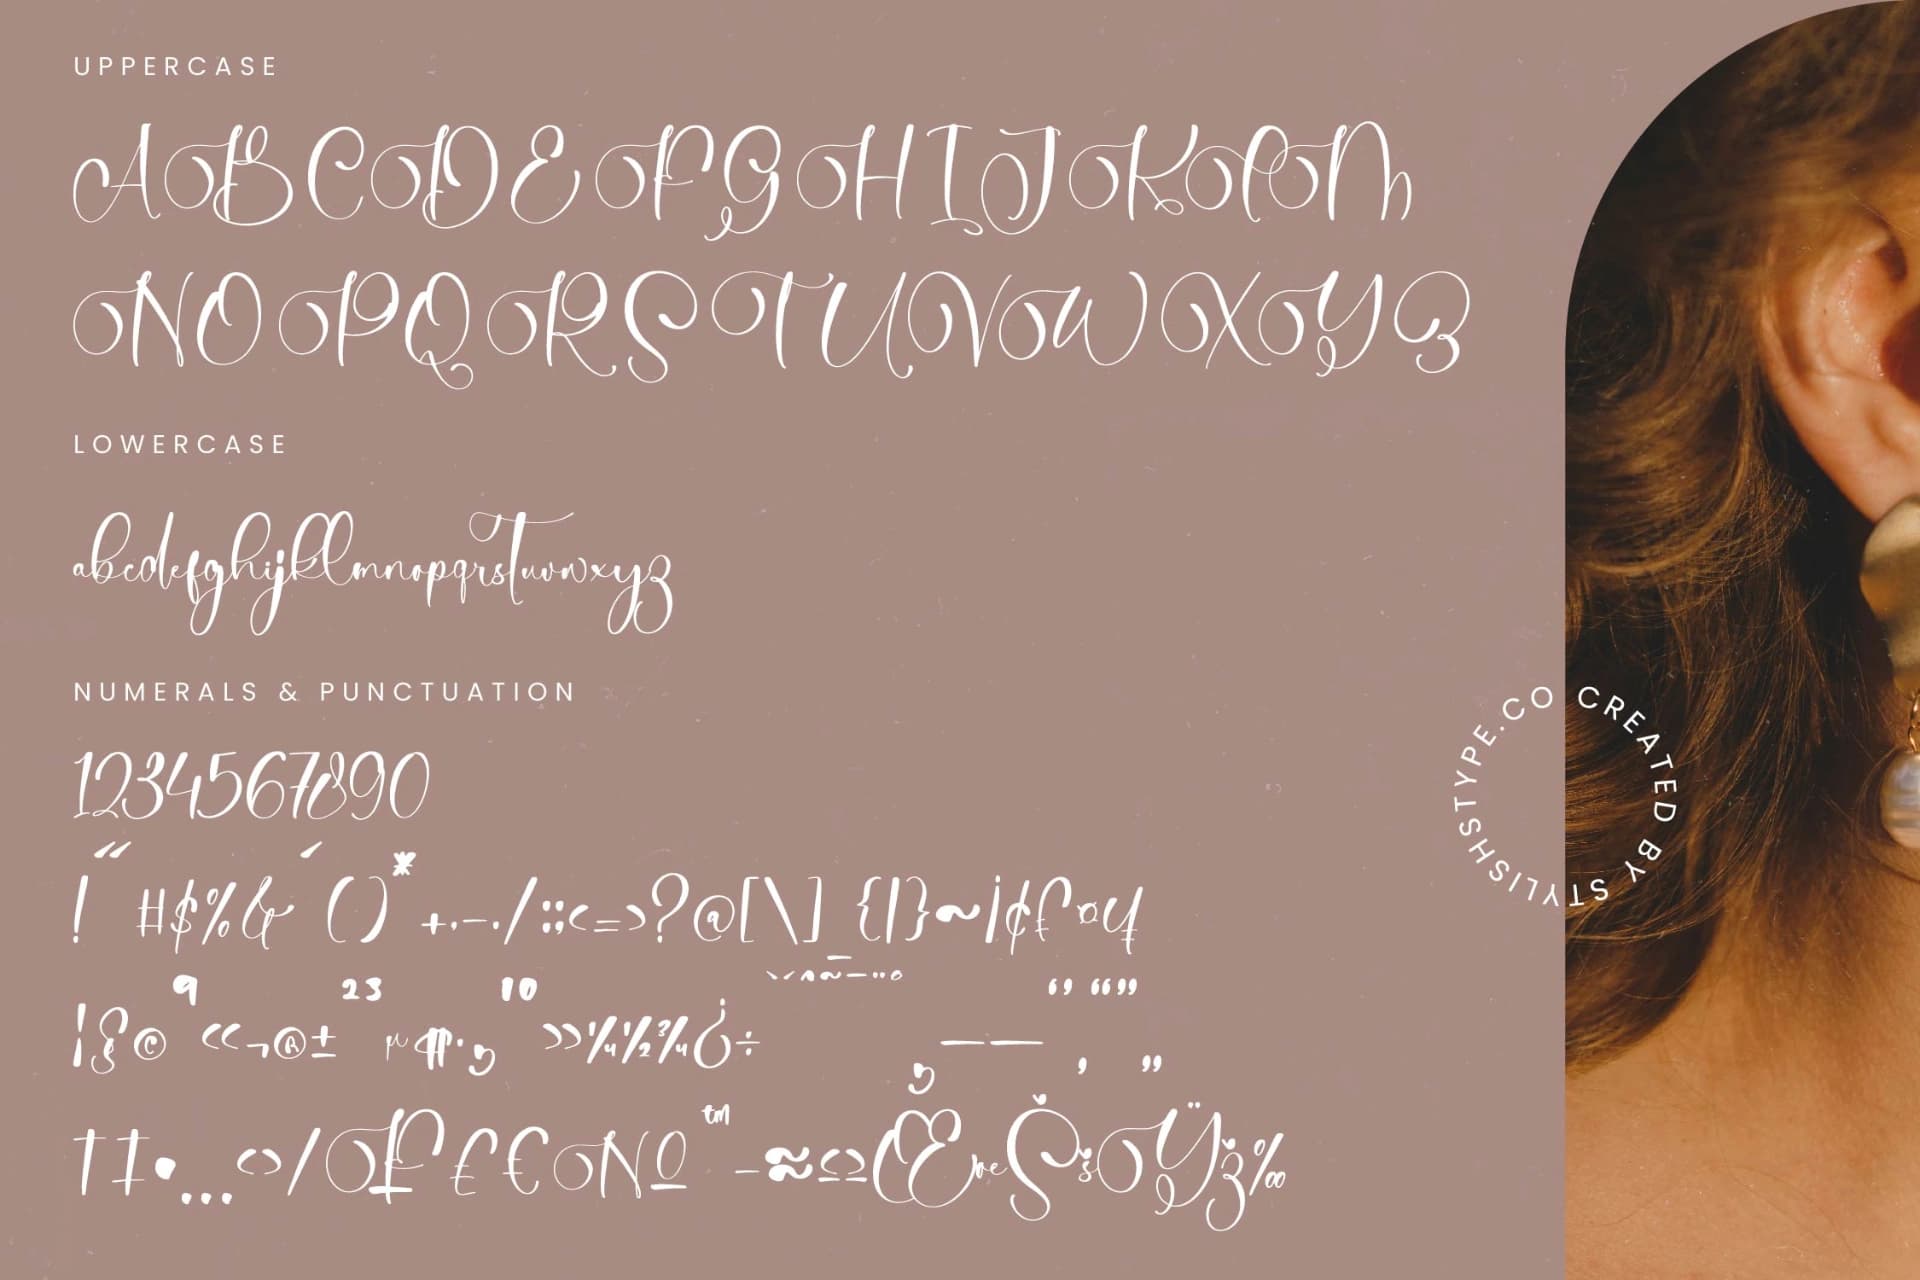 UPPERCASE
ABCDEFGHIJKLM
NOPQRSTUVWXYZ
LOWERCASE
abcdefghijklmnopqrstuvwxyz
NUMERALS & PUNCTUATION
1234567890
!"#$%&'()*+,-./:;<=>?@[\]_{|}~¡¢£¤¥
¦§©ª«¬®±²³µ¶·¸¹º»¼½¾¿÷
†‡•…‹›⁄₣₤€№™−≈≤≥ŒœŠšŸž‰
CREATED BY STYLISHSTYPE.CO